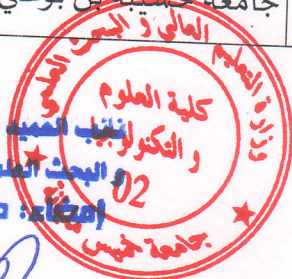 جامعة حسيبة بن بوعلي
وزارة التعليم العالي و البحث العلمي
كلية العلوم
و التكنولوجيا
02
جامعة خميس
نائب العميد
و البحث العلمي
إمضاء: